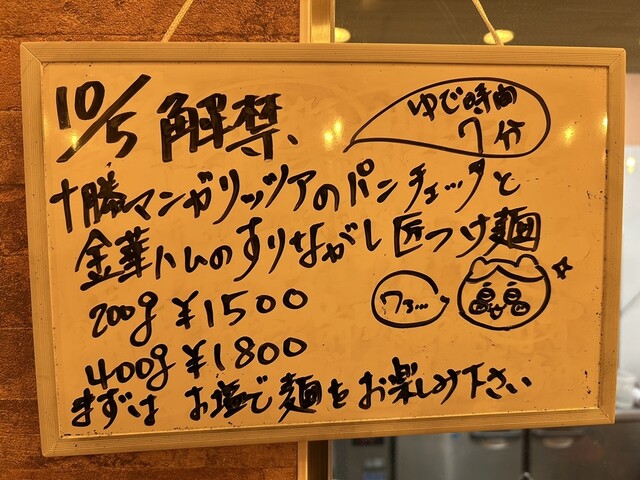 10/5 解禁
ゆで時間
7分
十勝マンガリッツアのパンチェッタと
金華ハムのすりながし匠つけ麺
200g ¥1500
フゥ…
400g ¥1800
まずは お塩で麺をお楽しみ下さい